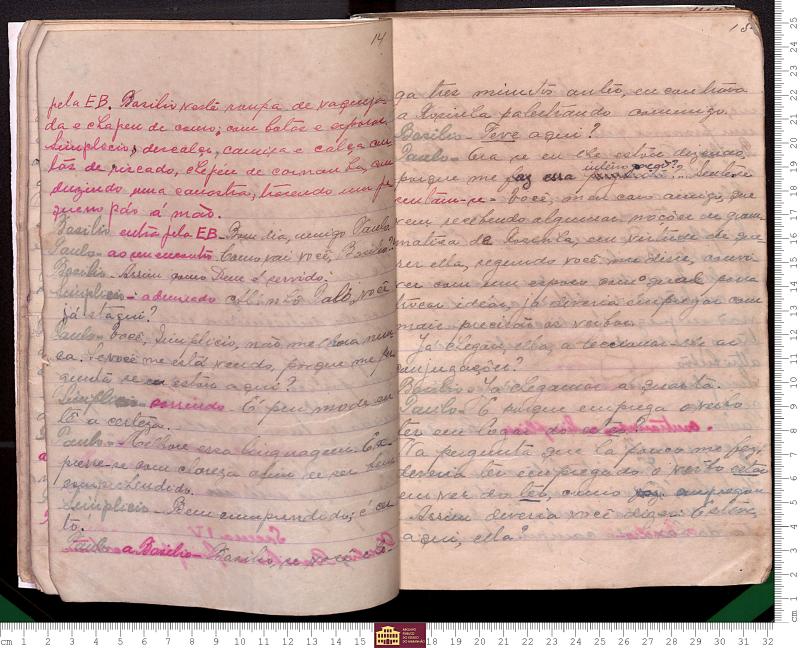 14
pela EB. Basilio veste roupa de vaqueja-
da e chapeu de couro, com botas e esporas.
Simplicio, descalço, camisa e calça cur-
tas de riscado, chapeu de carnauba, con-
duzindo uma canastra, trazendo um pe-
queno páo á mão.
Basilio entra pela EB - Bom dia, amigo Paulo.
Paulo - ao seu encontro Como vai você, Basilio?
Basilio - Assim como Deus é servido.
Simplicio - admirado Olá não Palo, você
já stá aqui?
Paulo - Você, Simplicio, não melhora nun-
ca. Se você me está vendo, porque me per-
gunta se estou aqui?
Simplicio - sorrindo - É pru mode
tê a certeza.
Paulo - Melhore essa linguagem. Ex-
presse-se com clareza afim de ser bem
comprehendido.
Simplicio - Bem comprendido; é
to.
Paulo a Basilio - Basilio, se você
15
ga tres minutos antes, encontrava
a Rosinha palestrando commigo.
Basilio - Teve aqui?
Paulo - Ora se eu lhe estou dizendo,
porque me faz essa
sentam-se - Você, meu caro amigo, que
vem recebendo algumas noções de gram-
matica de em virtude de que-
rer ella, segundo você me disse, convi-
ver com um esposo com o qual possa
trocar idéas, já deveria empregar com
mais precisão os verbos.
Já chegou, ella, a leccionar-lhe as
conjugações?
Basilio - Já chegamos a quarta.
Paulo - E porque emprega o verbo
ter em logar do estar?
Na pergunta que ha pouco me fez,
deveria ter empregado o verbo estar
em vez do ter, como empregou
Assim deveria você dizer: Esteve
aqui, ella?
ARQUIVO
PÚBLICO
DO ESTADO
DO MARANHÃO